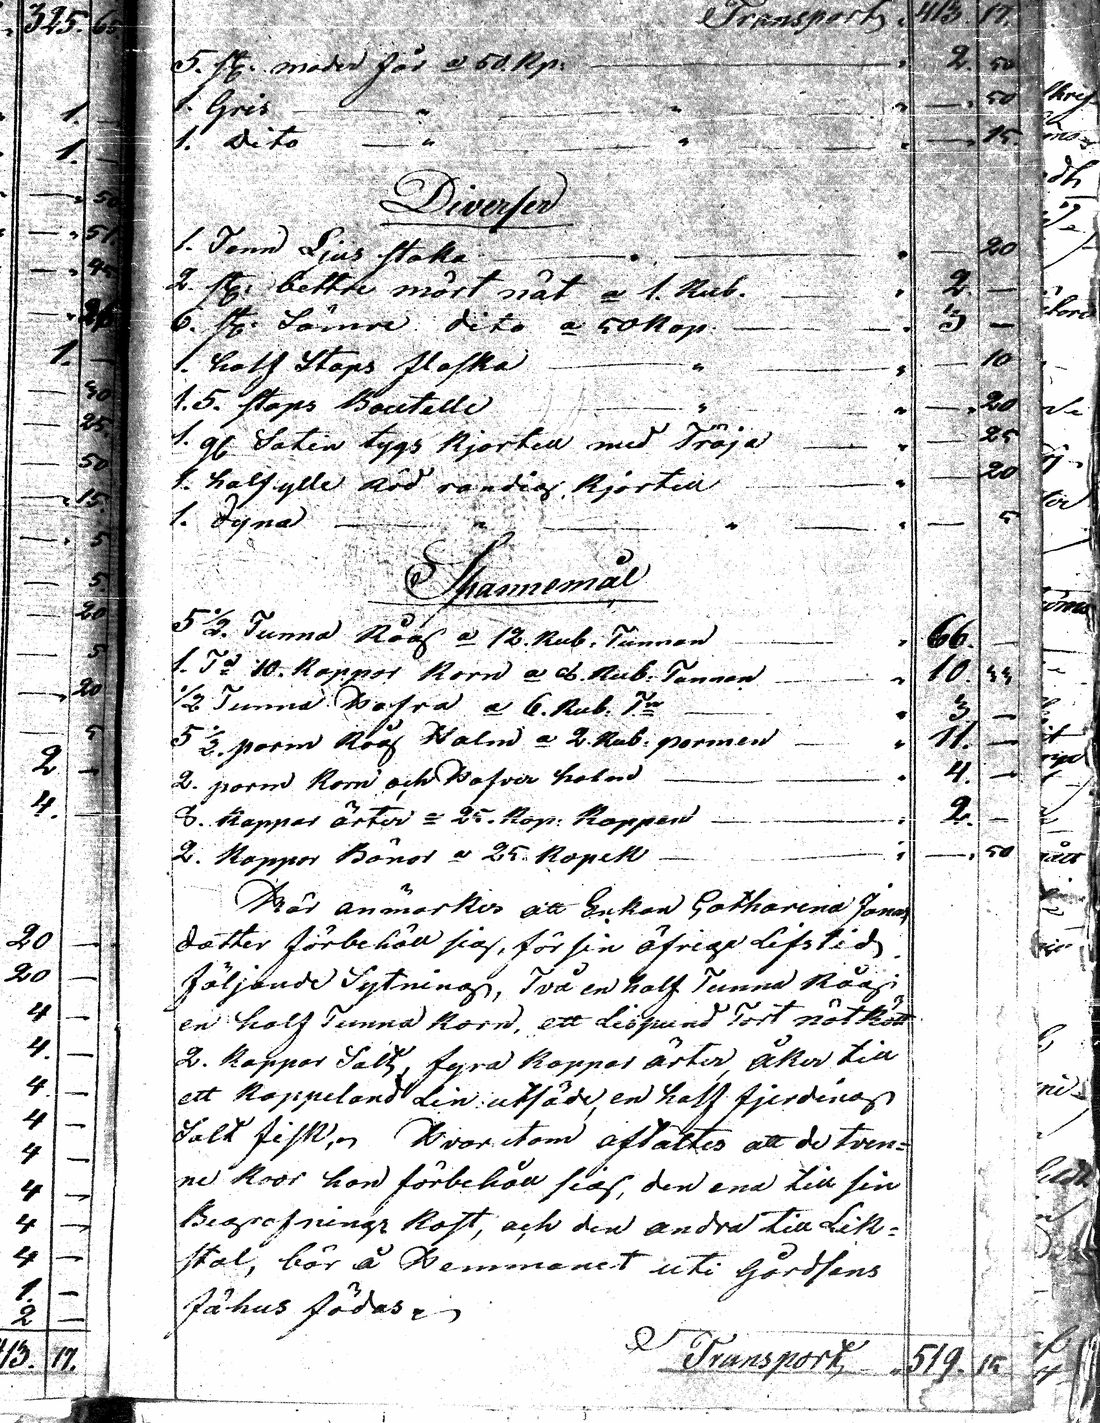 Transport „ 413. 17.
5. st. moder får a 50. Kp. „ 2. 50
1. Gris „ „ „ — „ 50
1. Dito — „ „ „ — „ 15.
Diverser
1. Tenn Ljus staka „ „ — 20
2. st. bettre mört nät a 1. Rub. „ 2. —
6. st. Sämre dito a 50 Kop. „ 3 —
1. half Stops flaska „ „ 10
1. 5. stops Boutelle „ „ — „ 20
1. gl Satin tygs Kjortell med Tröja „ — 25
1. halfylle Röd randig Kjortell „ — 20
1. Dyna „ „ „ — 5
Spannemål
5 1/2. Tunna Råg a 12. Rub. Tunnan „ 66. —
1. Ta 10. Kappar Korn a 8. Rub. Tunnan „ 10. 44
1/2 Tunna Hafra a 6. Rub. Tn „ 3 —
5 1/2. parm Råg Halm a 2. Rub. parmen „ 11. —
2. parm Korn och Hafver halm „ 4. —
8. Kappar ärter a 25. Kop. Kappen „ 2. —
2. Kappar Bönor a 25. Kopek „ — „ 50
Här anmärkes att Enkan Catharina Jonas
dotter förbehåll sig, för sin öfriga Lifstid
följande Sytning, Två en half Tunna Råg
en half Tunna Korn, ett Lispund Tort nötkött
2. Kappar Salt, fyra Kappar ärter, åker till
ett Kappeland Lin utsäde, en half fjerding
Salt fisk, Hvarutom aftaltes att de tven=
ne Koor hon förbehåll sig, den ena till sin
Begrafnings Kost, och den andra till Lik=
stol, bör å Hemmanet uti Gårdsens
fähus födas.
Transport „ 519. 15
325. 65
1. —
1. —
— „ 50
— „ 51.
1. —
25.
50
— „ 15.
— „ 5
5.
20
5
— „ 20
5
2 —
4. —
20 —
20 —
4 —
4. —
4. —
4 —
4 —
4 —
4 —
4 —
1. —
2 —
413. 17.